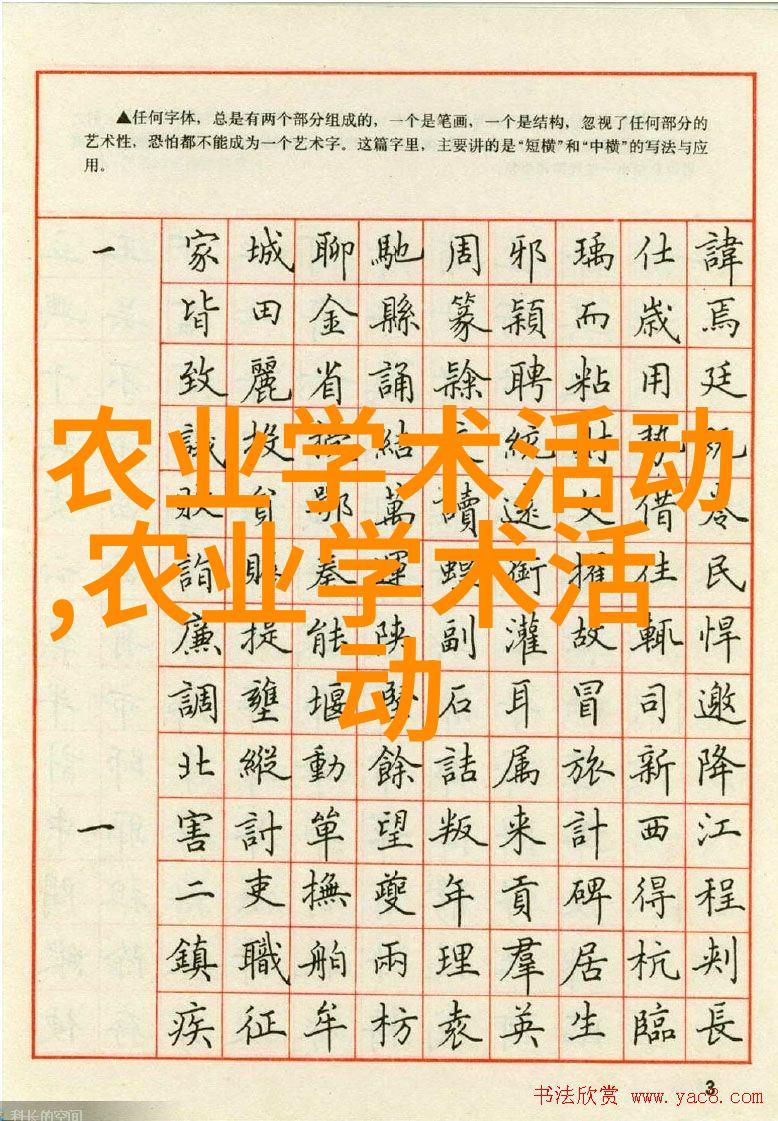 ▲任何字体，总是有两个部分组成的，一个是笔画，一个是结构，忽视了任何部分的
艺术性，恐怕都不能成为一个艺术字。这篇字里，主要讲的是“短横”和“中横”的写法与应
用。
一 家 城 聊 馳 周 邪 瑀 仕 諱
皆 田 金 縣 篆 穎 而 歲 焉
致 麗 省 誦 聘 粘 用 廷
農业学术活动
誠 投 結 統 財 勢
敗 貧 鄂 萬 讀 遠 文 借 零
,农业学术活
詣 奉 運 蜴 衝 擢 佳 民
廉 提 能 陝 副 灌 故 輒 悍
动
調 壅 堰 石 耳 冒 司 邀
北 縱 動 餘 詰 属 旅 新 降
一 害 討 單 望 叛 来 計 西 江
二 吏 撫 夔 年 貢 碑 得 程
鎮 職 舶 兩 理 羣 居 杭 刺
疾 征 牟 枋 袁 英 生 臨 長
3
书法欣赏 www.yac8.com
科长的空间